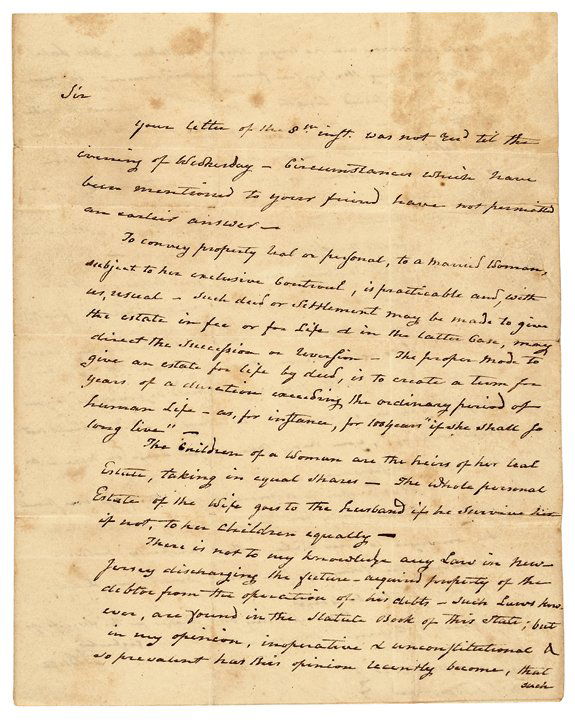 Sir
your letter of the 8th inst. was not Recd til the
evening of Wednesday – Circumstances which have
been mentioned to your friend have not permitted
an earlier answer –
To convey property real or personal, to a married Woman,
subject to her exclusive Controul, is practicable and, with
us, usual – Such deed or Settlement may be made to give
the estate in fee or for Life & in the latter Case, may
direct the Succession or reversion – The proper mode to
give an estate for life by deed, is to create a term for
years of a duration exceeding the ordinary period of
human Life – as, for instance, for 100 years "if she shall so
long live" –
The Children of a Woman are the heirs of her real
Estate, taking in equal shares – The whole personal
Estate of the Wife goes to the husband if he survive her
if not, to her children equally –
There is not to my knowledge any Law in New-
Jersey discharging the future-acquired property of the
debtor from the operation of his debts – such Laws how-
ever, are found in the Statute Book of this State; but
in my opinion, inoperative & unconstitutional &
so prevalent has this opinion recently become, that
such